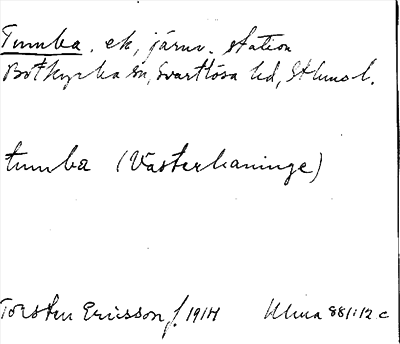 Tumba. ek, järnv. station
Botkyrka sn, Svartlösa hd, Sthms l.
tumba (Västerhaninge)
Torsten Ericsson f. 1914 Ulma 881:12 c